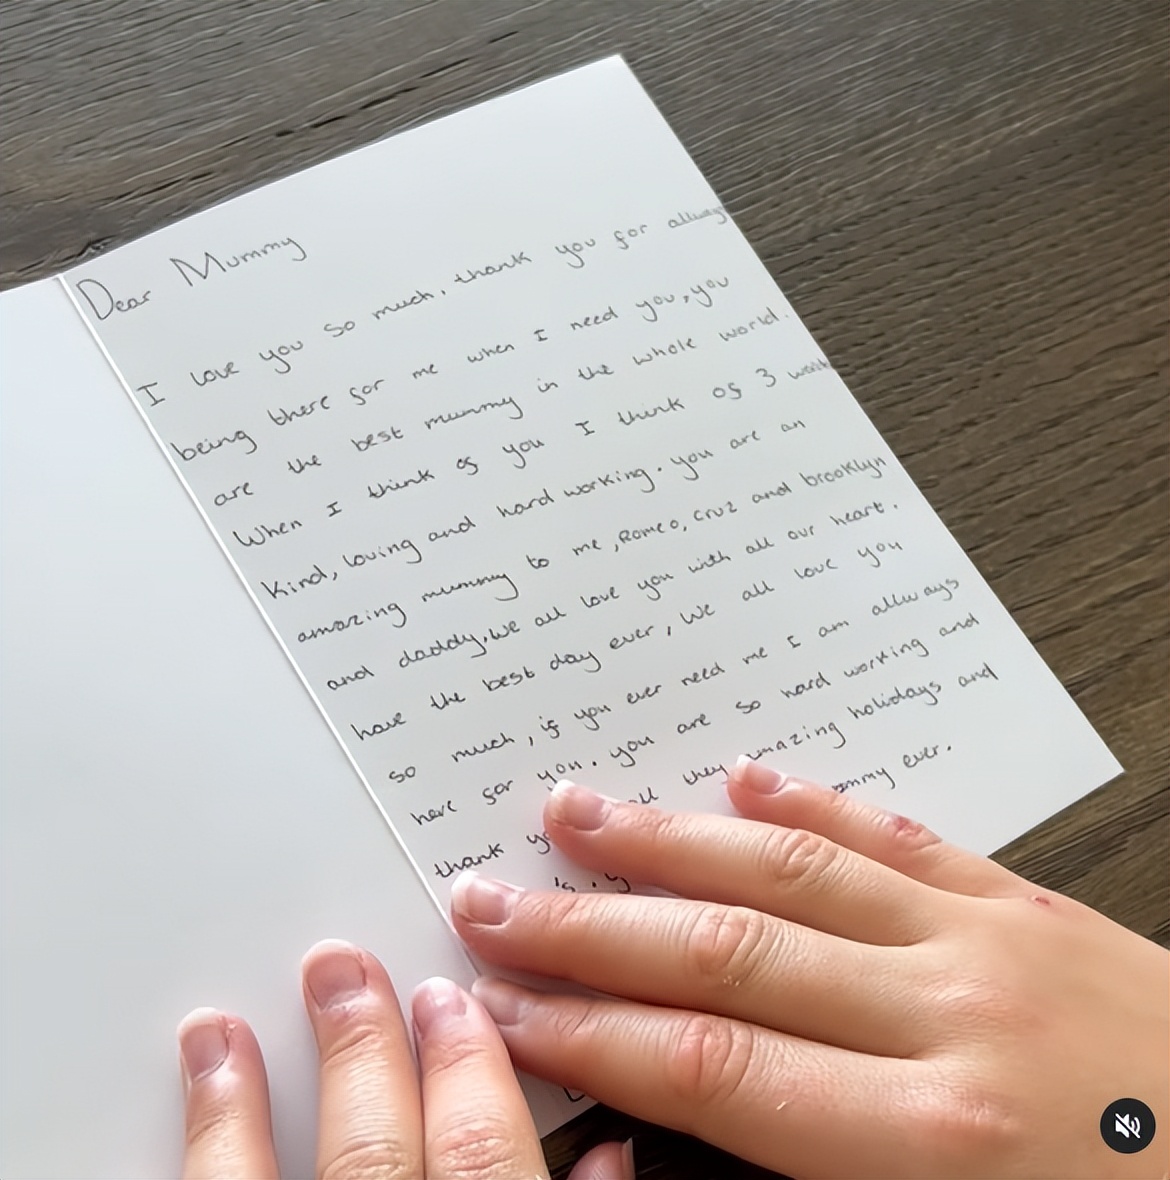 Dear Mummy
I love you so much, thank you for allways
being there for me when I need you, you
are the best mummy in the whole world.
When I think of you I think of 3
Kind, loving and hard working. you are an
amazing mummy to me, Romeo, Cruz and brooklyn
and daddy, we all love you with all our heart.
have the best day ever, We all love you
so much, if you ever need me I am allways
here for you. you are so hard working and
thank all they amazing holidays and
ever.